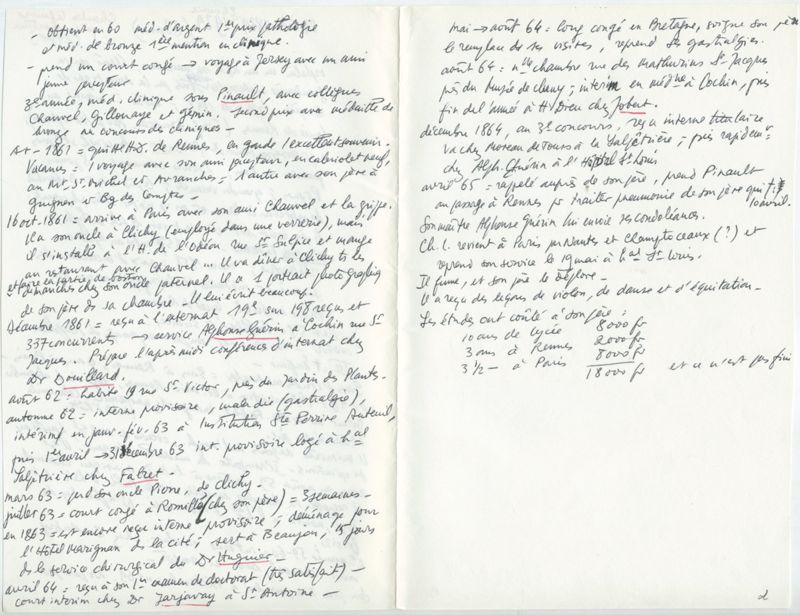 - obtient en 60 méd. d'argent 1er prix pathologie
et méd. de bronze 1ère mention en clinique.
- prend un court congé → voyage à Jersey avec un ami
jeune précepteur
3e année, méd. clinique sous Pinault, avec collègues
Chauvel, Gillouaye et Gémin. Second prix avec médaille de
bronze au concours des cliniques -
A+ - 1861 = quitte H.D. de Rennes, en garde 1 excellent souvenir.
Vacances = 1 voyage avec son ami précepteur, en cabriolet neuf,
au Mt St Michel et Avranches = 1 autre avec son père à
Guignen et Bg des Comptes -
16 oct. 1861 = arrive à Paris avec son ami Chauvel et la grippe.
Il a son oncle à Clichy (employé dans une verrerie), mais
il s'installe à l'H. de l'Odéon rue St Sulpice et mange
au restaurant avec Chauvel ... Il va dîner à Clichy ts les
et faire en partie de
dimanches chez son oncle paternel. Il a 1 portrait photographiq
de son père ds sa chambre - Il lui écrit beaucoup.
Décembre 1861 = reçu à l'externat 19è sur 198 reçus et
337 concurrents → service Alphonse Guérin à Cochin rue St
Jacques. Prépare l'après midi conférences d'internat chez
Dr Douillard.
août 62 = habite 19 rue St. Victor, près du Jardin des Plantes.
automne 62 = interne provisoire, maladie (gastralgie),
intérim en janv. fév. 63 à Institution Ste Perrine Auteuil,
puis 1er avril → 31 décembre 63 int. provisoire logé à hal
Salpêtrière chez Falret -
mars 63 = perd son oncle Pierre, de Clichy -
juillet 63 = court congé à Romillé (chez son père) = 3 semaines -
en 1863 = est encore reçu interne provisoire ; déménage pour
l'Hôtel Marignan de la cité ; sert à Beaujon, 15 jours
ds le service chirurgical du Dr Huguier -
avril 64 = reçu à son 1er examen de doctorat (très satisfait) -
court interim chez Dr Jarjavay à St Antoine -
mai → août 64 = long congé en Bretagne, soigne son père
le remplace ds ses visites, reprend ses gastralgies.
août 64 = nlle chambre rue des Mathurins St Jacques
près du Musée de Cluny ; interim en médne à Cochin, puis
fin de l'année à H. Dieu chez Jobert.
décembre 1864, au 3e concours, reçu interne titulaire
va chez Moreau de Tours à la Salpêtrière ; puis rapidemt
chez Alph. Guérin à l'Hôpital St Louis
avril 65 = rappelé auprès de son père, prend Pinault
au passage à Rennes pr traiter pneumonie de son père qui †
10 avril.
Son maître Alphonse Guérin lui envoie ses condoléances.
Ch. L. revient à Paris par Nantes et Champtoceaux (?) et
reprend son service le 19 mai à hal St Louis.
Il fume, et son père le déplore -
Il a reçu des leçons de violon, de danse et d'équitation -
Ses études ont coûté à son père :
10 ans de lycée 8000 fr
3 ans à Rennes 2000 fr
3 1/2 - à Paris 8000 fr
18000 fr et ce n'est pas fini